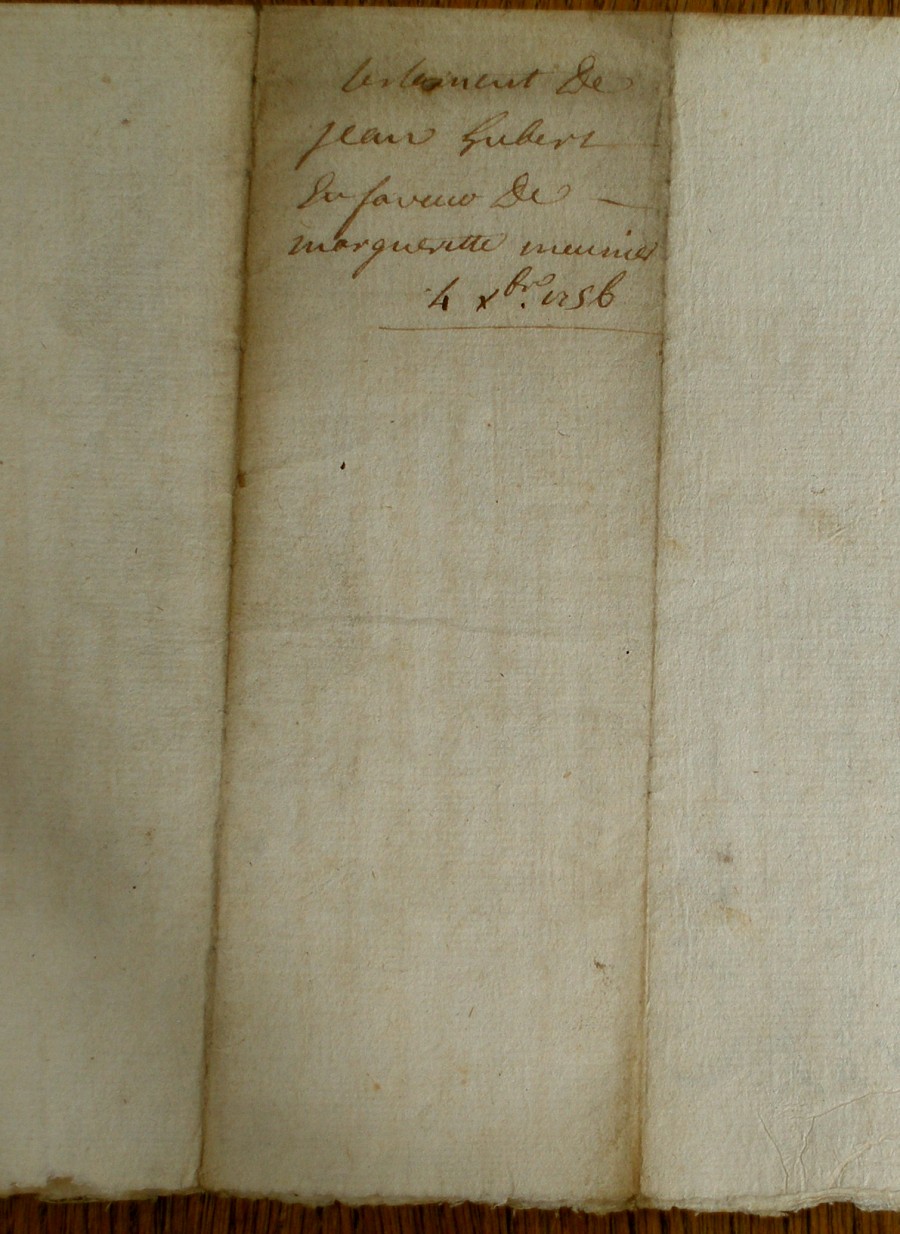 testament De
jean hubert
En faveur De —
margueritte meunier
4 xbr. 1756